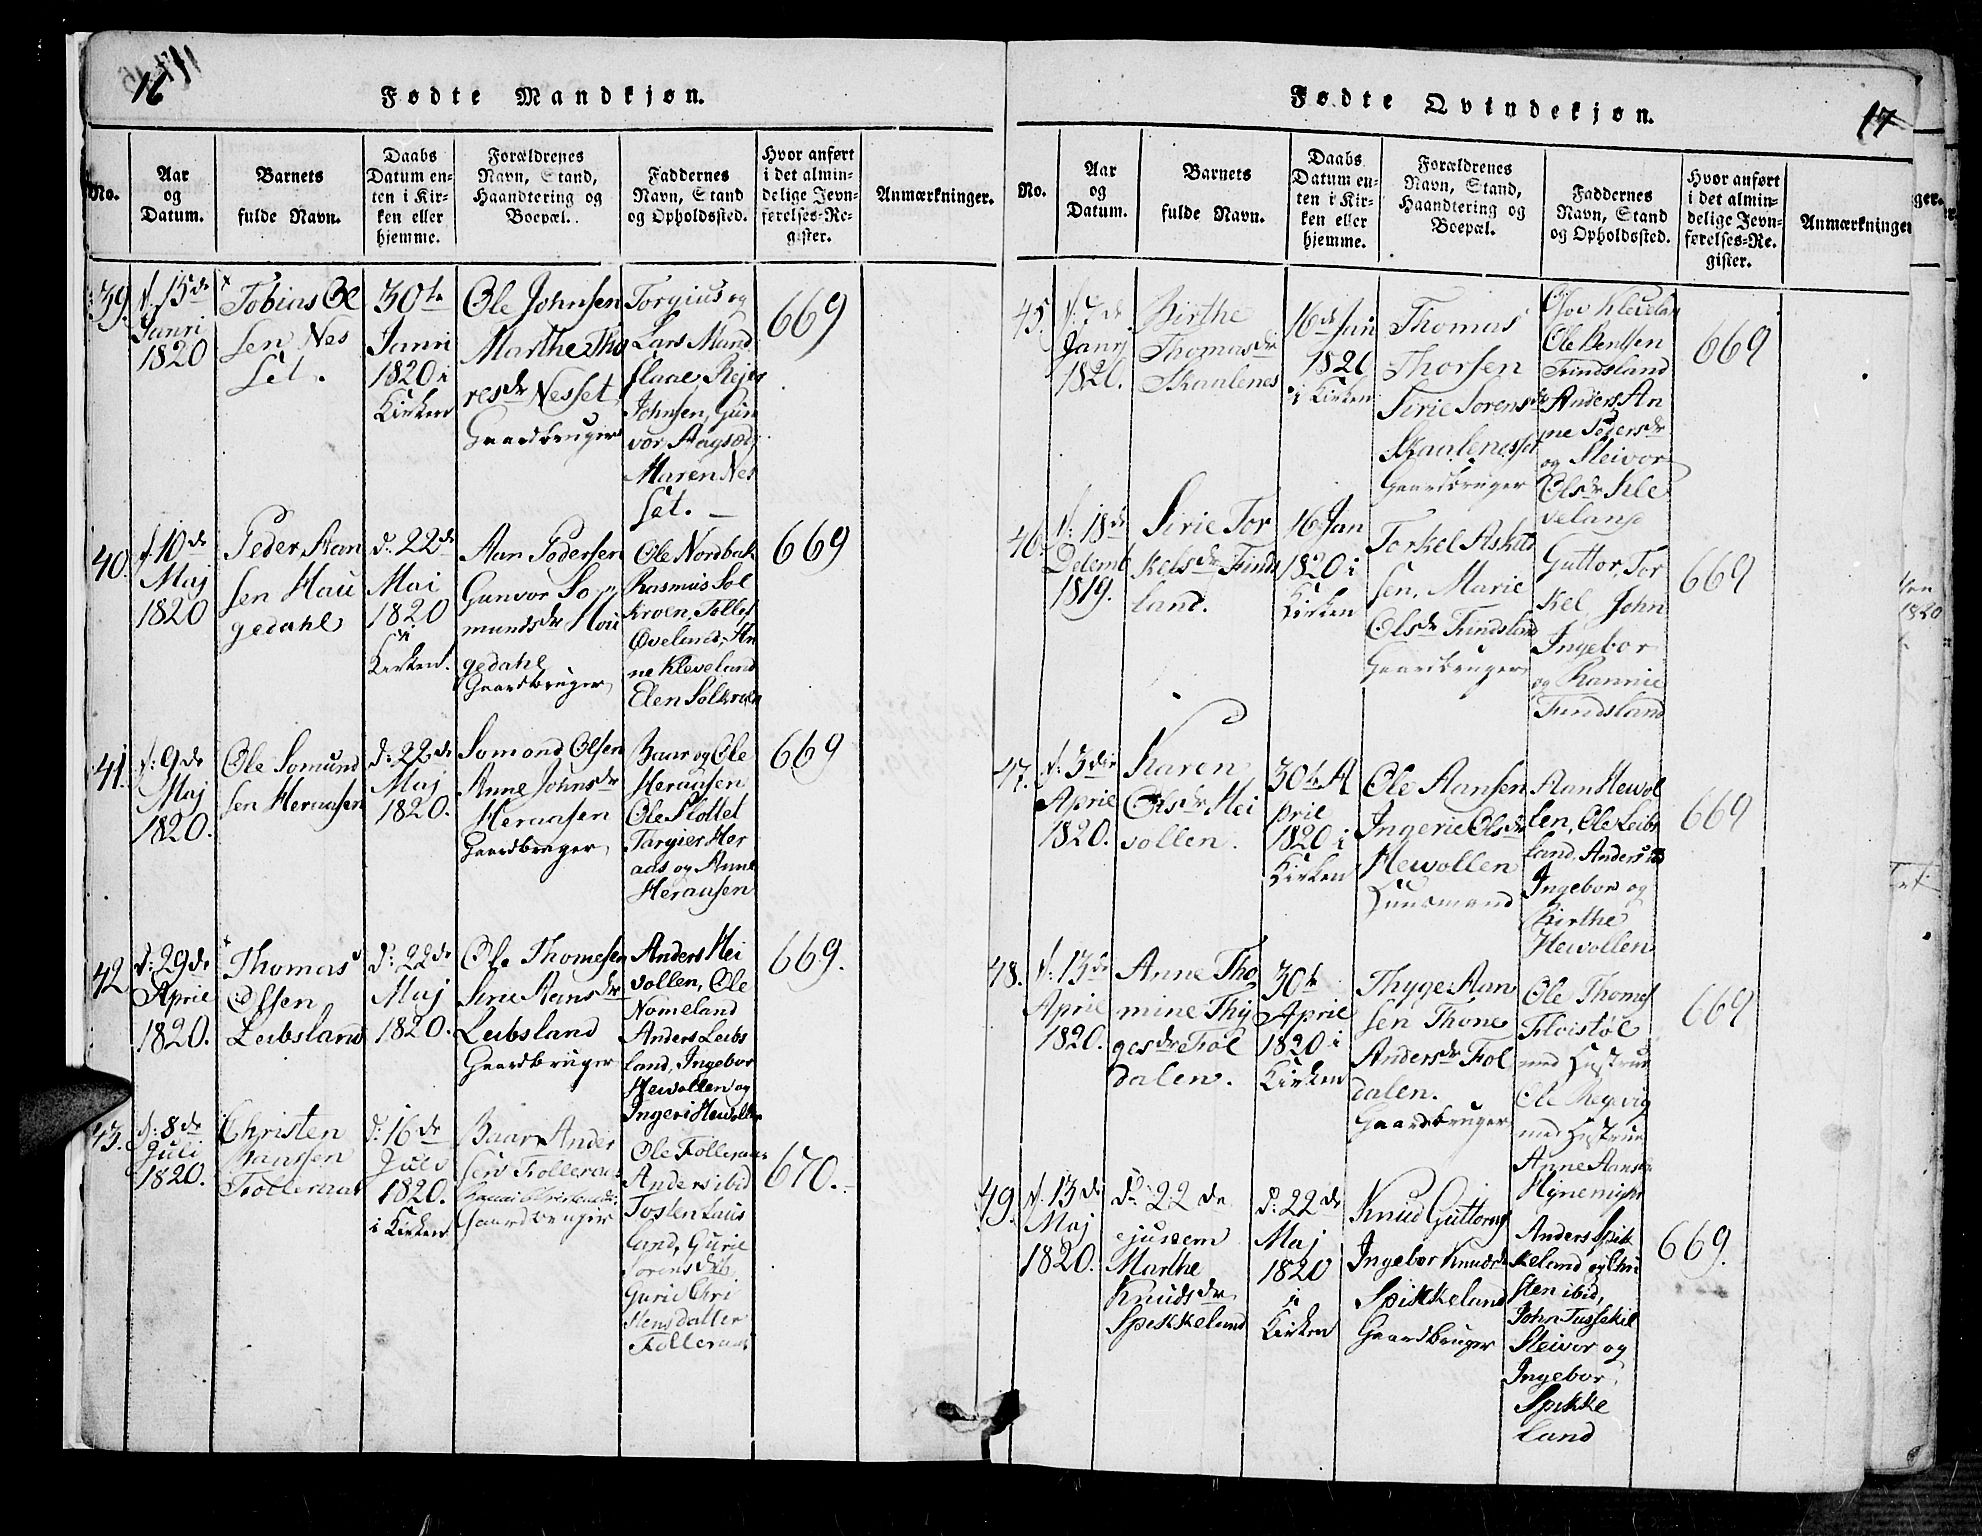 16
Fødte Mandkjøn.
No.
Aar
og
Datum.
Barnets
fulde Navn.
Daabs
Datum en-
ten i Kir-
ken eller
hjemme.
Forældrenes
Navn, Stand,
Haandtering og
Boepæl.
Faddernes
Navn, Stand
og Opholdssted.
Hvor anført
i det almin-
delige Jevn-
førelses-Re-
gister.
Anmærkninger.
39.
d. 15de
Janri
1820
Tobias Ol
sen Nes
set.
30te
Janri
1820 i
Kirken
Ole Johnsen
Marthe Tho
resdr Nesset
Gaardbruger
Torgius og
Lars Mand
flaae
Johnsen, Gun
vor
Maren Nes
set.
669
40.
d. 10de
Maj
1820
Peder Aan
sen Hau
gedahl
d. 22de
Mai
1820
i
Kirken.
Aan Pedersen
Gunvor So
mundsdr Hou
gedahl
Gaardbruger
Ole Nordbak
Rasmus Sol
kroen, Tollef
Øveland, An
ne Kleveland
Elen Solkroen
669
41.
d. 9de
Maj
1820.
Ole Somund
sen Heraasen
d. 22de
Maj
1820.
Somond Olsen
Anne Johnsdr
Heraasen
Gaardbruger
Baar og Ole
Heraasen
Ole Slottet
Targier Her
aas og Anne
Heraasen
669
42
d: 29de
April
1820.
Thomas
Olsen
Leibsland
d: 22de
Maj
1820.
Ole Thomesen
Sirie Aansdr
Leibsland
Gaardbruger
Anders Hei
vollen, Ole
Nomeland
Anders Leibs
land, Ingebor
Hewollen og
Ingeri Hewollen
669.
43.
d: 8de
Juli
1820.
Christen
Baarssen
Folleraas
d: 16de
Juli
1820.
i Kirken
Baar Ander
sen Folleraas
Gaardbruger
Ole Folleraas
Anders ibid
Tosten Laus
land, Gurie
Sorensdr
Gurie Chri
stensdatter
Folleraas
670.
17
Fødte Qvindekjøn.
No.
Aar
og
Datum.
Barnets
fulde Navn.
Daabs
Datum en-
ten i Kir-
ken eller
hjemme.
Forældrenes
Navn, Stand,
Haandtering og
Boepæl.
Faddernes
Navn, Stand
og Opholdssted.
Hvor anført
i det almin-
delige Jevn-
førelses-Re-
gister.
Anmærkninger
45.
d. 7de
Janrj
1820.
Birthe
Thomasdr
Skaalenes
16de Jan
1820
i Kirken
Thomas
Thorsen
Sirie Sorensdr
Skaalenesset
Gaardbruger
Kleveland
Ole Bentsen
Findsland
Anders An
ne Pedersdr
og Steivor
Olsdr Kle
veland
669
46.
d. 18de
Decemb
1819.
Sirie Tor
kelsdr Finds
land.
16 Jan
1820 i
Kirken
Torkel Aslak
sen, Marie
Olsdr Findsland
Gaardbruger
Guttor, Tor
kel, John
Ingebor
og Rannie
Findsland
669
47.
d. 3die
April
1820.
Karen
Olsdr Hei
vollen.
30te A
pril
1820 i
Kirken
Ole Aansen
Ingerie Olsdr
Hewollen
Huusmand
Aan Hewol
len, Ole Leibs
land, Anders ibid
Ingebor og
Birthe
Hewollen
669
48.
d. 13de
April
1820.
Anne Tho
mine Thy
gesdr Fiol
dalen.
30te
April
1820 i
Kirken
Thyge Aan
sen Thone
Andersdr Fiol
dalen.
Gaardbruger
Ole Thomes
Floistøl
med Hustrue
Ole Røgevig
med Hustrue
Anne Aansdr
Hynemyr
669
49.
d. 13de
Maj
1820.
d: 22de
ejusdem
Marthe
Knudsdr
Spikkeland
d: 22de
Maj
1820
i
Kirken
Knud Guttorms
Ingebor Knudsdr
Spikkeland
Gaardbruger
Anders Spik
keland og Chri
sten ibid,
John Tussekil
Steivor og
Ingebor
Spikke
land
669.